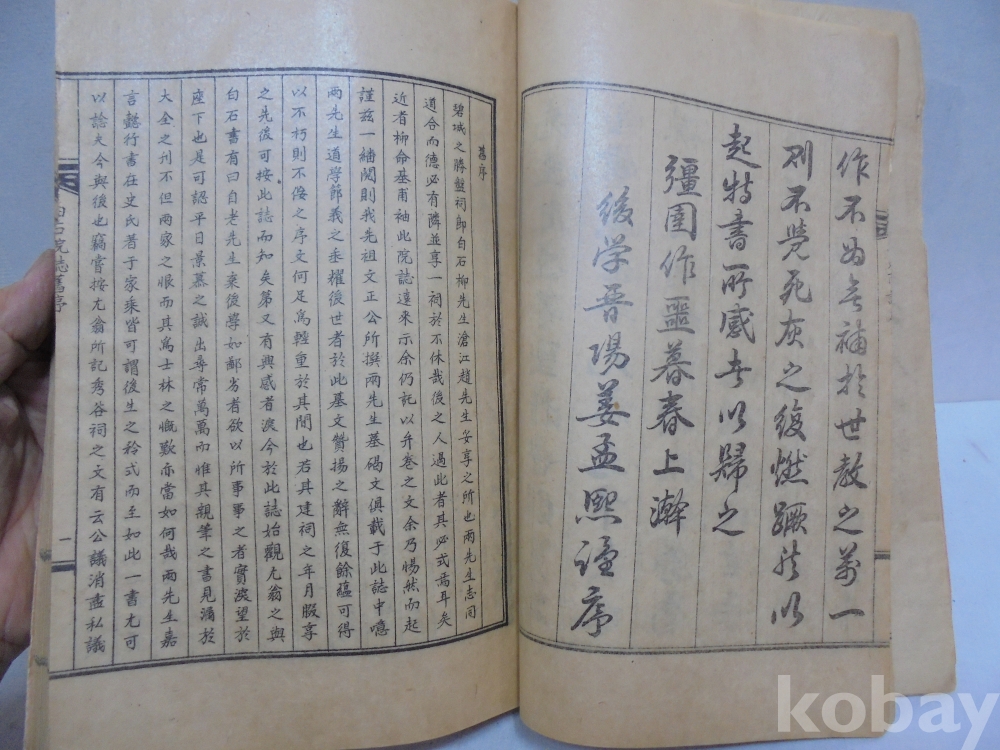 作不為無補於世教之萬一
則不覺死灰之復燃蹶然以
起特書所感者以歸之
彊圉作噩暮春上澣
後学晉陽姜孟熙謹序
舊序
碧城之勝盤祠卽白石柳先生滄江趙先生妥享之所也兩先生志同
道合而德必有隣並享一祠於不休哉後之人過此者其必式焉耳矣
近者柳命基甫袖此院誌遠來示余仍託以弁卷之文余乃惕然而起
謹玆一繙閱則我先祖文正公所撰兩先生墓碣文俱載于此誌中噫
兩先生道學節義之垂耀後世者於此墓文贊揚之辭無復餘蘊可得
以不朽則不侫之序文何足爲輕重於其間也若其建祠之年月腏享
之先後可按此誌而知矣第又有興感者淚今於此誌始觀尤翁之與
白石書有曰自老先生棄後學如鄙劣者欲以所事事之者實深望於
座下也是可認平日景慕之誠出尋常萬萬而惟其親筆之書見漏於
大全之刊不但兩家之恨而其爲士林之慨歎亦當如何哉兩先生嘉
言懿行書在史氏著于家乘皆可謂後生之矜式而至如此一書尤可
以諗夫今與後也竊嘗按尤翁所記秀谷祠之文有云公議消盡私議
白石院誌舊序
一
kobay